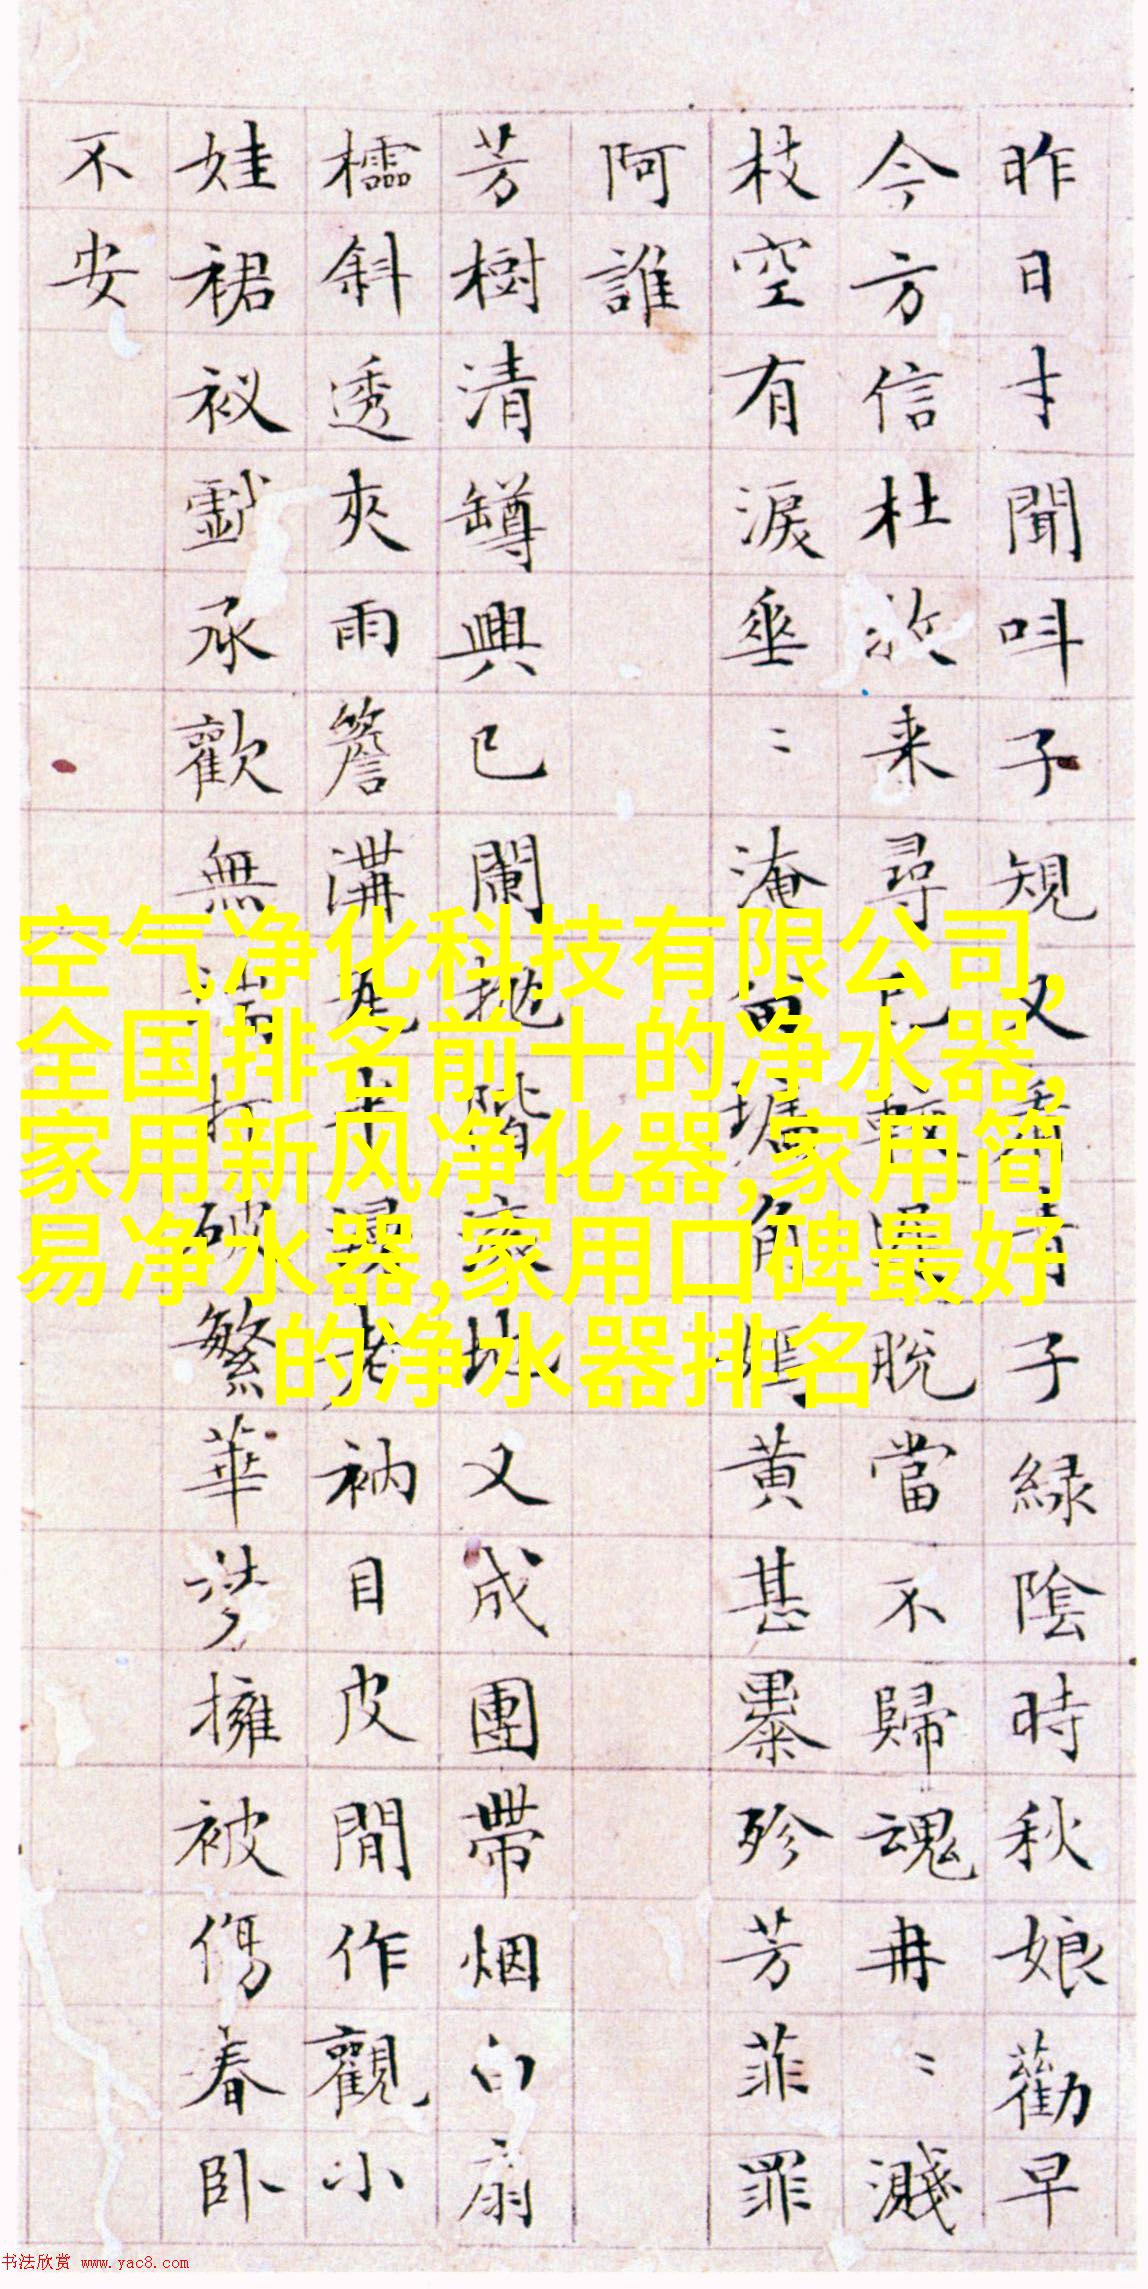 昨日才聞呌子規又看青子緑陰時秋娘勸早
今方信杜 来尋 脫當不歸魂冉〻濺
枝空有淚垂〻淹留塘角嫣黃甚黍殄芳菲罪
阿誰
芳樹清罇興已闌拋階滾地又成團帶烟白扇
櫺斜透夾雨簷溝 老衲目皮閒作觀小
娃裙衩 承歡無端打破繁華夢擁被傷春臥
不安
空气净化科技有限公司,
全国排名前十的净水器,
家用新风净化器,家用简
易净水器,家用口碑最好
的净水器排名
书法欣赏 www.yac8.com